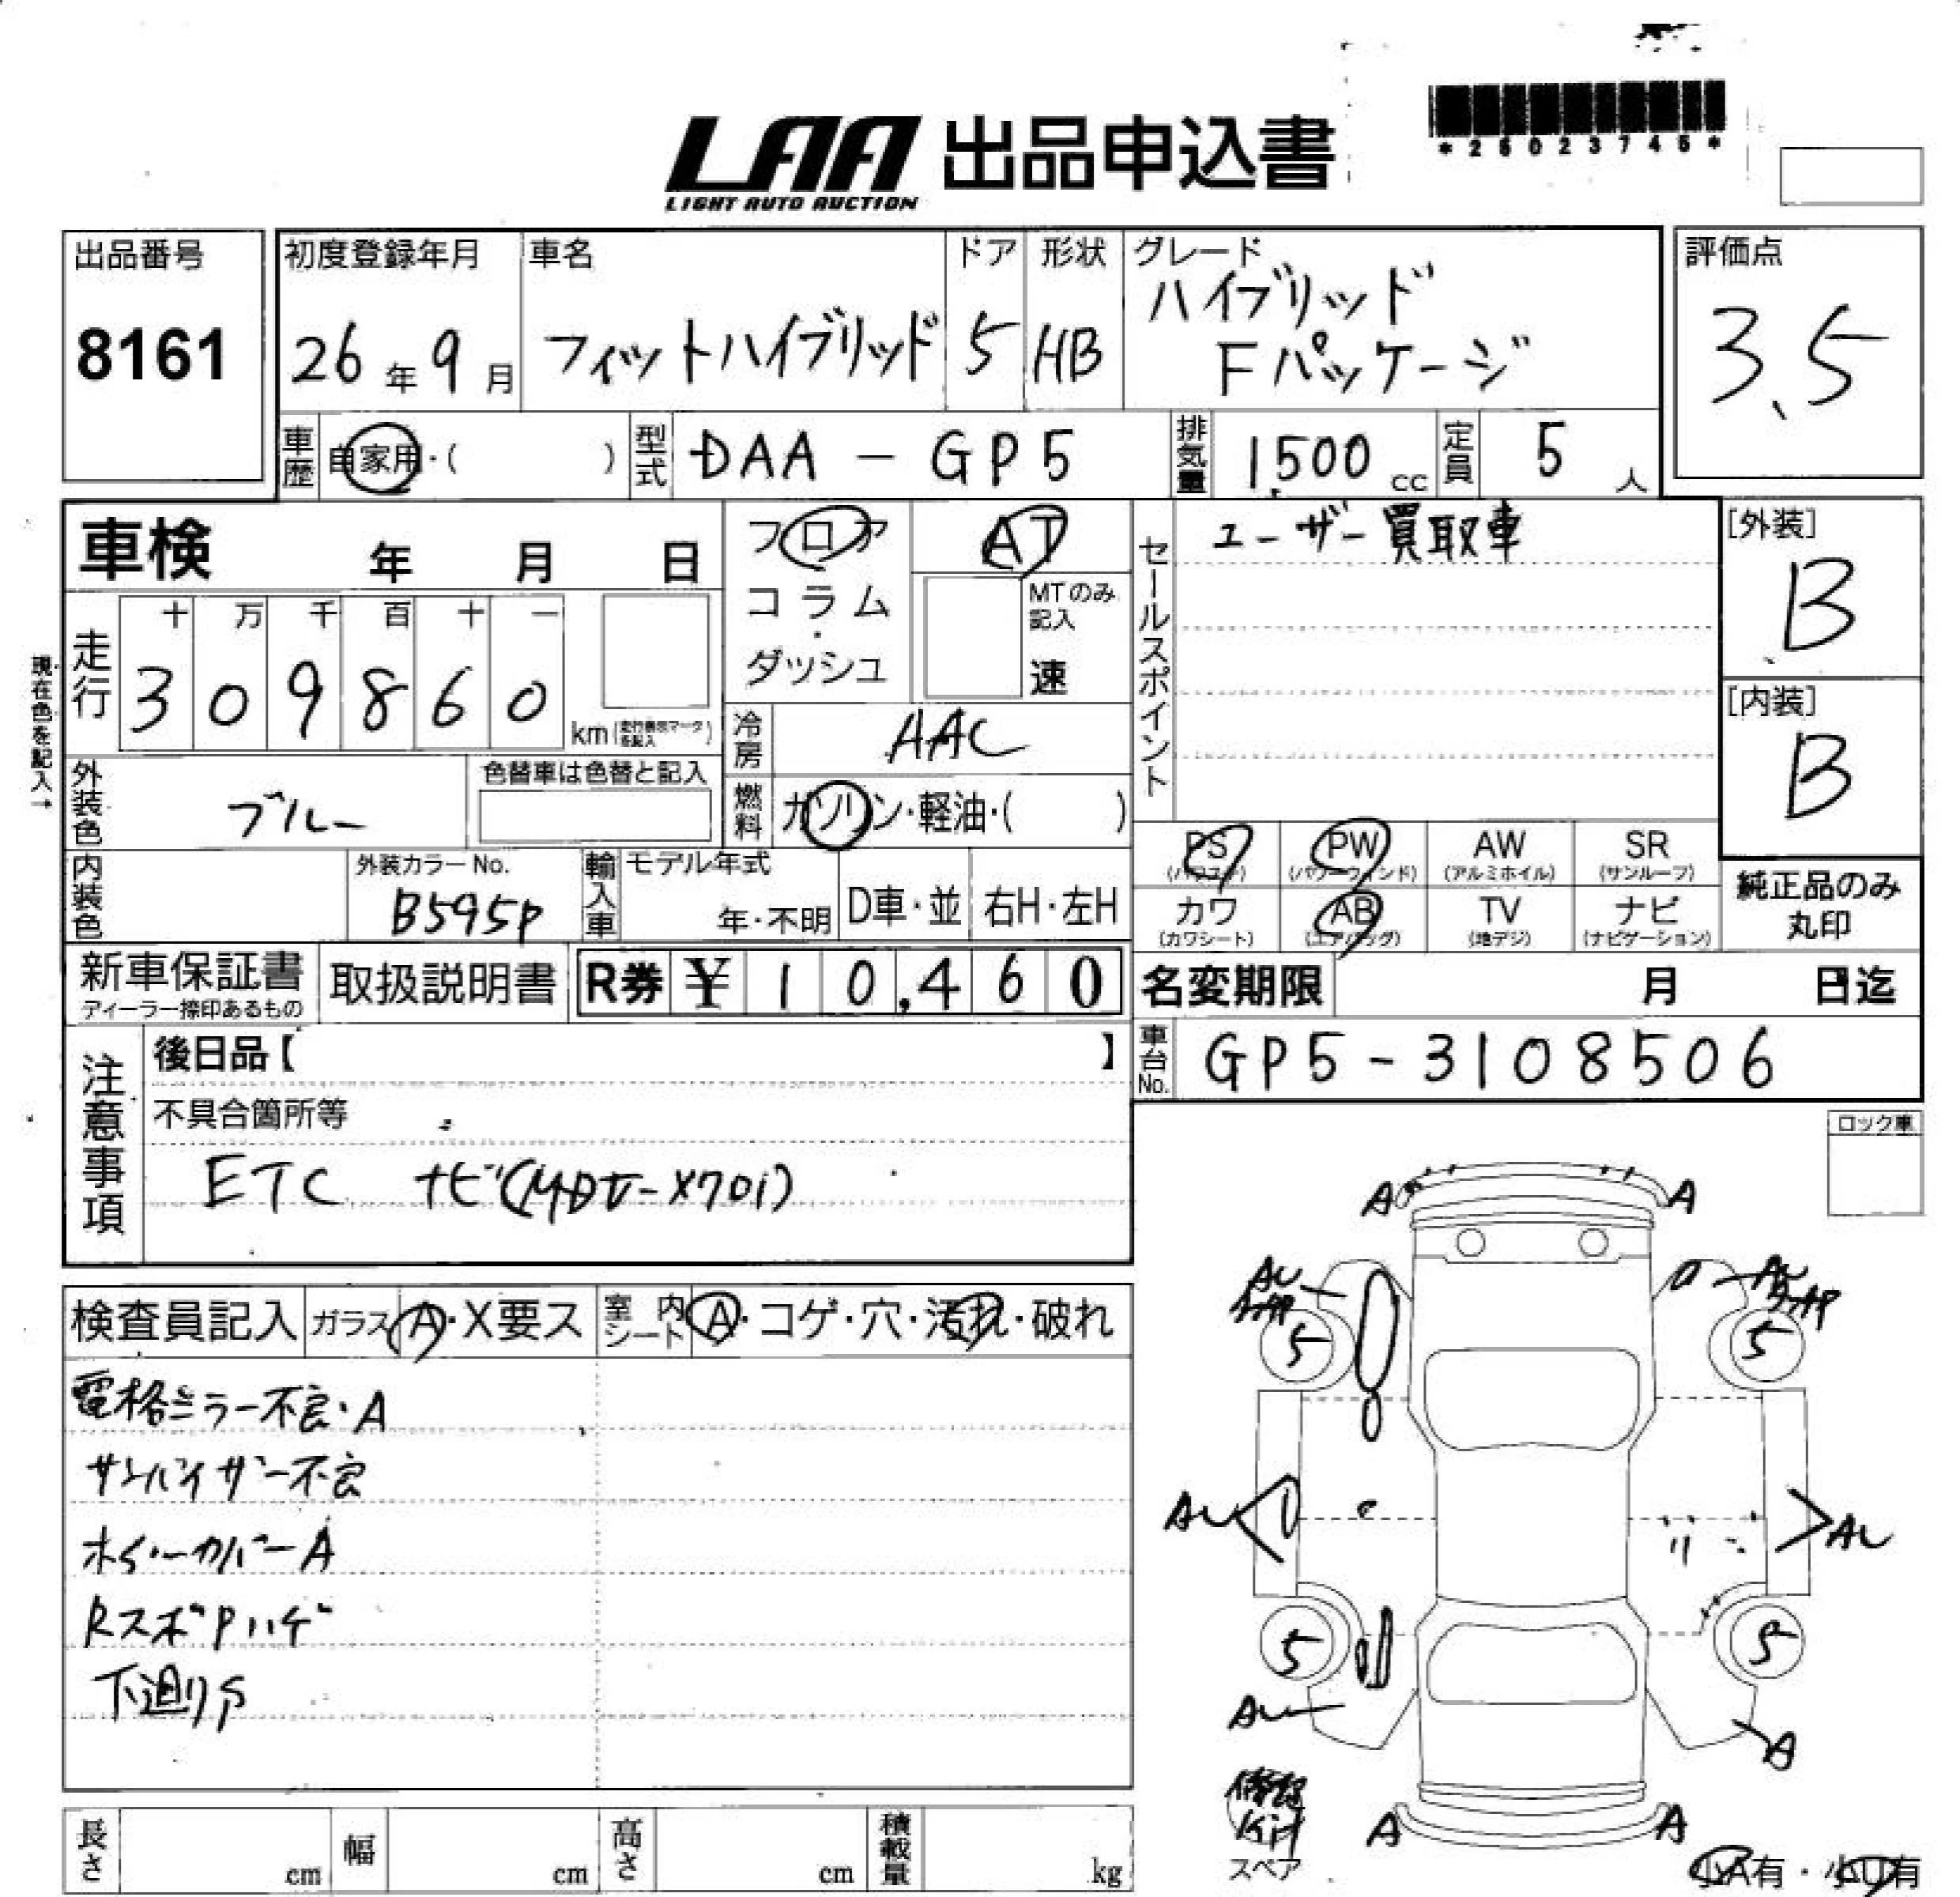 *26023745*
LAA 出品申込書
LIGHT AUTO AUCTION
出品番号
8161
初度登録年月
26年9月
車名
フィットハイブリッド
ドア
5
形状
HB
グレード
ハイブリッド
Fパッケージ
評価点
3.5
車歴
自家用・( )
型式
DAA-GP5
排気量
1,500 cc
定員
5人
車検 年 月 日
フロア
コラム
・
ダッシュ
AT
MTのみ
記入
速
セールスポイント
ユーザー買取車
[外装]
B
[内装]
B
現在色を記入→
走行
十 万 千 百 十 一
3 0 9 8 6 0
km(走行表示マークを記入)
冷房
AAC
外装色
ブルー
色替車は色替と記入
燃料
ガソリン・軽油・( )
PS
(パワステ)
PW
(パワーウィンド)
AW
(アルミホイル)
SR
(サンルーフ)
カワ
(カワシート)
AB
(エアバッグ)
TV
(地デジ)
ナビ
(ナビゲーション)
純正品のみ
丸印
内装色
外装カラーNo.
B595P
輸入車
モデル年式
年・不明
D車・並
右H・左H
新車保証書
ディーラー捺印あるもの
取扱説明書
R券 ¥ 10,460
名変期限 月 日迄
車台No.
GP5-3108506
注意事項
後日品【 】
不具合箇所等
ETC ナビ
ロック車
検査員記入
ガラス A・X要ス
室内シート A・コゲ・穴・汚れ・破れ
電格ミラー不良・A
サンバイザー不良
ホイールカバーA
RスポPハゲ
下廻りS
A A
AU
AU
5 5
AU
AU
5 5
AU
A
修理
Kit
スペア
A A
小A有・小U有
長さ cm
幅 cm
高さ cm
積載量 kg